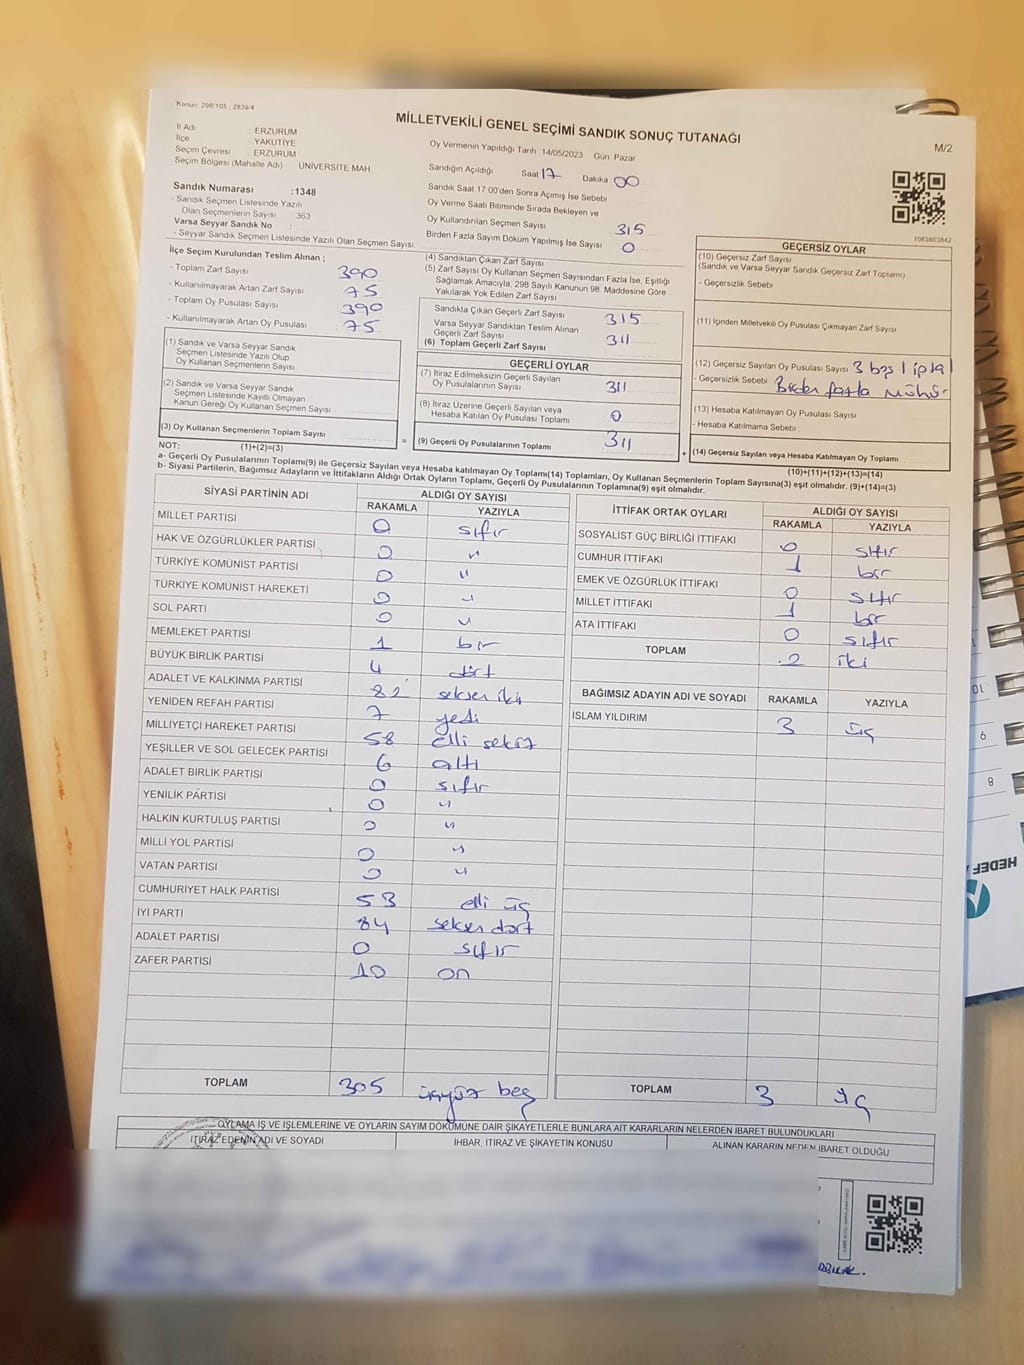 Kanun: 298/105 , 2839/4
MİLLETVEKİLİ GENEL SEÇİMİ SANDIK SONUÇ TUTANAĞI
M/2
İl Adı ERZURUM
İlçe YAKUTİYE
Seçim Çevresi ERZURUM
Seçim Bölgesi (Mahalle Adı) ÜNİVERSİTE MAH
Oy Vermenin Yapıldığı Tarih 14/05/2023 Gün: Pazar
Sandığın Açıldığı Saat 17 Dakika 00
Sandık Saat 17.00'den Sonra Açılmış İse Sebebi
Sandık Numarası :1348
- Sandık Seçmen Listesinde Yazılı
Olan Seçmenlerin Sayısı 363
Varsa Seyyar Sandık No :
- Seyyar Sandık Seçmen Listesinde Yazılı Olan Seçmen Sayısı:
Oy Verme Saati Bitiminde Sırada Bekleyen ve
Oy Kullandırılan Seçmen Sayısı 315
Birden Fazla Sayım Döküm Yapılmış İse Sayısı 0
1083603842
İlçe Seçim Kurulundan Teslim Alınan ;
- Toplam Zarf Sayısı 390
- Kullanılmayarak Artan Zarf Sayısı 75
- Toplam Oy Pusulası Sayısı 390
- Kullanılmayarak Artan Oy Pusulası 75
(1) Sandık ve Varsa Seyyar Sandık
Seçmen Listesinde Yazılı Olup
Oy Kullanan Seçmenlerin Sayısı
(2) Sandık ve Varsa Seyyar Sandık
Seçmen Listesinde Kayıtlı Olmayan
Kanun Gereği Oy Kullanan Seçmen Sayısı
(3) Oy Kullanan Seçmenlerin Toplam Sayısı
(1)+(2)=(3)
=
(4) Sandıktan Çıkan Zarf Sayısı
(5) Zarf Sayısı Oy Kullanan Seçmen Sayısından Fazla İse, Eşitliği
Sağlamak Amacıyla, 298 Sayılı Kanunun 98. Maddesine Göre
Yakılarak Yok Edilen Zarf Sayısı
Sandıkta Çıkan Geçerli Zarf Sayısı 315
Varsa Seyyar Sandıktan Teslim Alınan
Geçerli Zarf Sayısı 311
(6) Toplam Geçerli Zarf Sayısı
GEÇERLİ OYLAR
(7) İtiraz Edilmeksizin Geçerli Sayılan
Oy Pusulalarının Sayısı 311
(8) İtiraz Üzerine Geçerli Sayılan veya
Hesaba Katılan Oy Pusulası Toplamı 0
(9) Geçerli Oy Pusulalarının Toplamı 311
+
GEÇERSİZ OYLAR
(10) Geçersiz Zarf Sayısı
(Sandık ve Varsa Seyyar Sandık Geçersiz Zarf Toplamı)
- Geçersizlik Sebebi
(11) İçinden Milletvekili Oy Pusulası Çıkmayan Zarf Sayısı
(12) Geçersiz Sayılan Oy Pusulası Sayısı 3 boş 1 iptal
- Geçersizlik Sebebi Birden fazla mühür
(13) Hesaba Katılmayan Oy Pusulası Sayısı
- Hesaba Katılmama Sebebi :
(14) Geçersiz Sayılan veya Hesaba Katılmayan Oy Toplamı
(10)+(11)+(12)+(13)=(14)
NOT:
a- Geçerli Oy Pusulalarının Toplamı(9) ile Geçersiz Sayılan veya Hesaba katılmayan Oy Toplamı(14) Toplamları, Oy Kullanan Seçmenlerin Toplam Sayısına(3) eşit olmalıdır. (9)+(14)=(3)
b- Siyasi Partilerin, Bağımsız Adayların ve İttifakların Aldığı Ortak Oyların Toplamı, Geçerli Oy Pusulalarının Toplamına(9) eşit olmalıdır.
SİYASİ PARTİNİN ADI ALDIĞI OY SAYISI
RAKAMLA YAZIYLA
MİLLET PARTİSİ 0 sıfır
HAK VE ÖZGÜRLÜKLER PARTİSİ 0 "
TÜRKİYE KOMÜNİST PARTİSİ 0 "
TÜRKİYE KOMÜNİST HAREKETİ 0 "
SOL PARTİ 0 "
MEMLEKET PARTİSİ 1 bir
BÜYÜK BİRLİK PARTİSİ 4 dört
ADALET VE KALKINMA PARTİSİ 82 seksen iki
YENİDEN REFAH PARTİSİ 7 yedi
MİLLİYETÇİ HAREKET PARTİSİ 58 elli sekiz
YEŞİLLER VE SOL GELECEK PARTİSİ 6 altı
ADALET BİRLİK PARTİSİ 0 sıfır
YENİLİK PARTİSİ 0 "
HALKIN KURTULUŞ PARTİSİ 0 "
MİLLİ YOL PARTİSİ 0 "
VATAN PARTİSİ 0 "
CUMHURİYET HALK PARTİSİ 53 elli üç
İYİ PARTİ 84 seksen dört
ADALET PARTİSİ 0 sıfır
ZAFER PARTİSİ 10 on
TOPLAM 305 üçyüz beş
İTTİFAK ORTAK OYLARI ALDIĞI OY SAYISI
RAKAMLA YAZIYLA
SOSYALİST GÜÇ BİRLİĞİ İTTİFAKI 0 sıfır
CUMHUR İTTİFAKI 1 bir
EMEK VE ÖZGÜRLÜK İTTİFAKI 0 sıfır
MİLLET İTTİFAKI 1 bir
ATA İTTİFAKI 0 sıfır
TOPLAM 2 iki
BAĞIMSIZ ADAYIN ADI VE SOYADI RAKAMLA YAZIYLA
İSLAM YILDIRIM 3 üç
TOPLAM 3 üç
OYLAMA İŞ VE İŞLEMLERİNE VE OYLARIN SAYIM DÖKÜMÜNE DAİR ŞİKAYETLERLE BUNLARA AİT KARARLARIN NELERDEN İBARET BULUNDUKLARI
İTİRAZ EDENİN ADI VE SOYADI İHBAR, İTİRAZ VE ŞİKAYETİN KONUSU ALINAN KARARIN NEDEN İBARET OLDUĞU
10
9
8
HEDEF